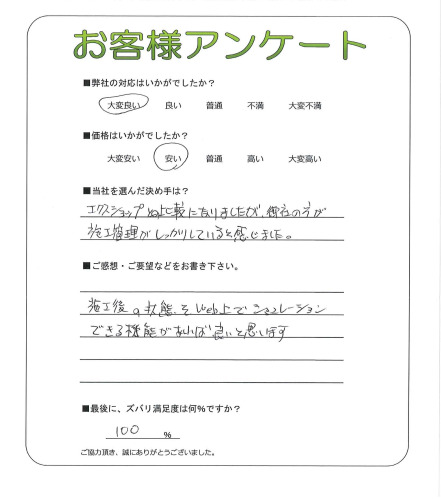 お客様アンケート
■弊社の対応はいかがでしたか？
大変良い 良い 普通 不満 大変不満
■価格はいかがでしたか？
大変安い 安い 普通 高い 大変高い
■当社を選んだ決め手は？
エクスショップと比較になりましたが、御社の方が
施工管理がしっかりしていると感じました。
■ご感想・ご要望などをお書き下さい。
施工後の状態をWeb上でシュミレーション
できる機能があれば良いと思います
■最後に、ズバリ満足度は何％ですか？
100 %
ご協力頂き、誠にありがとうございました。